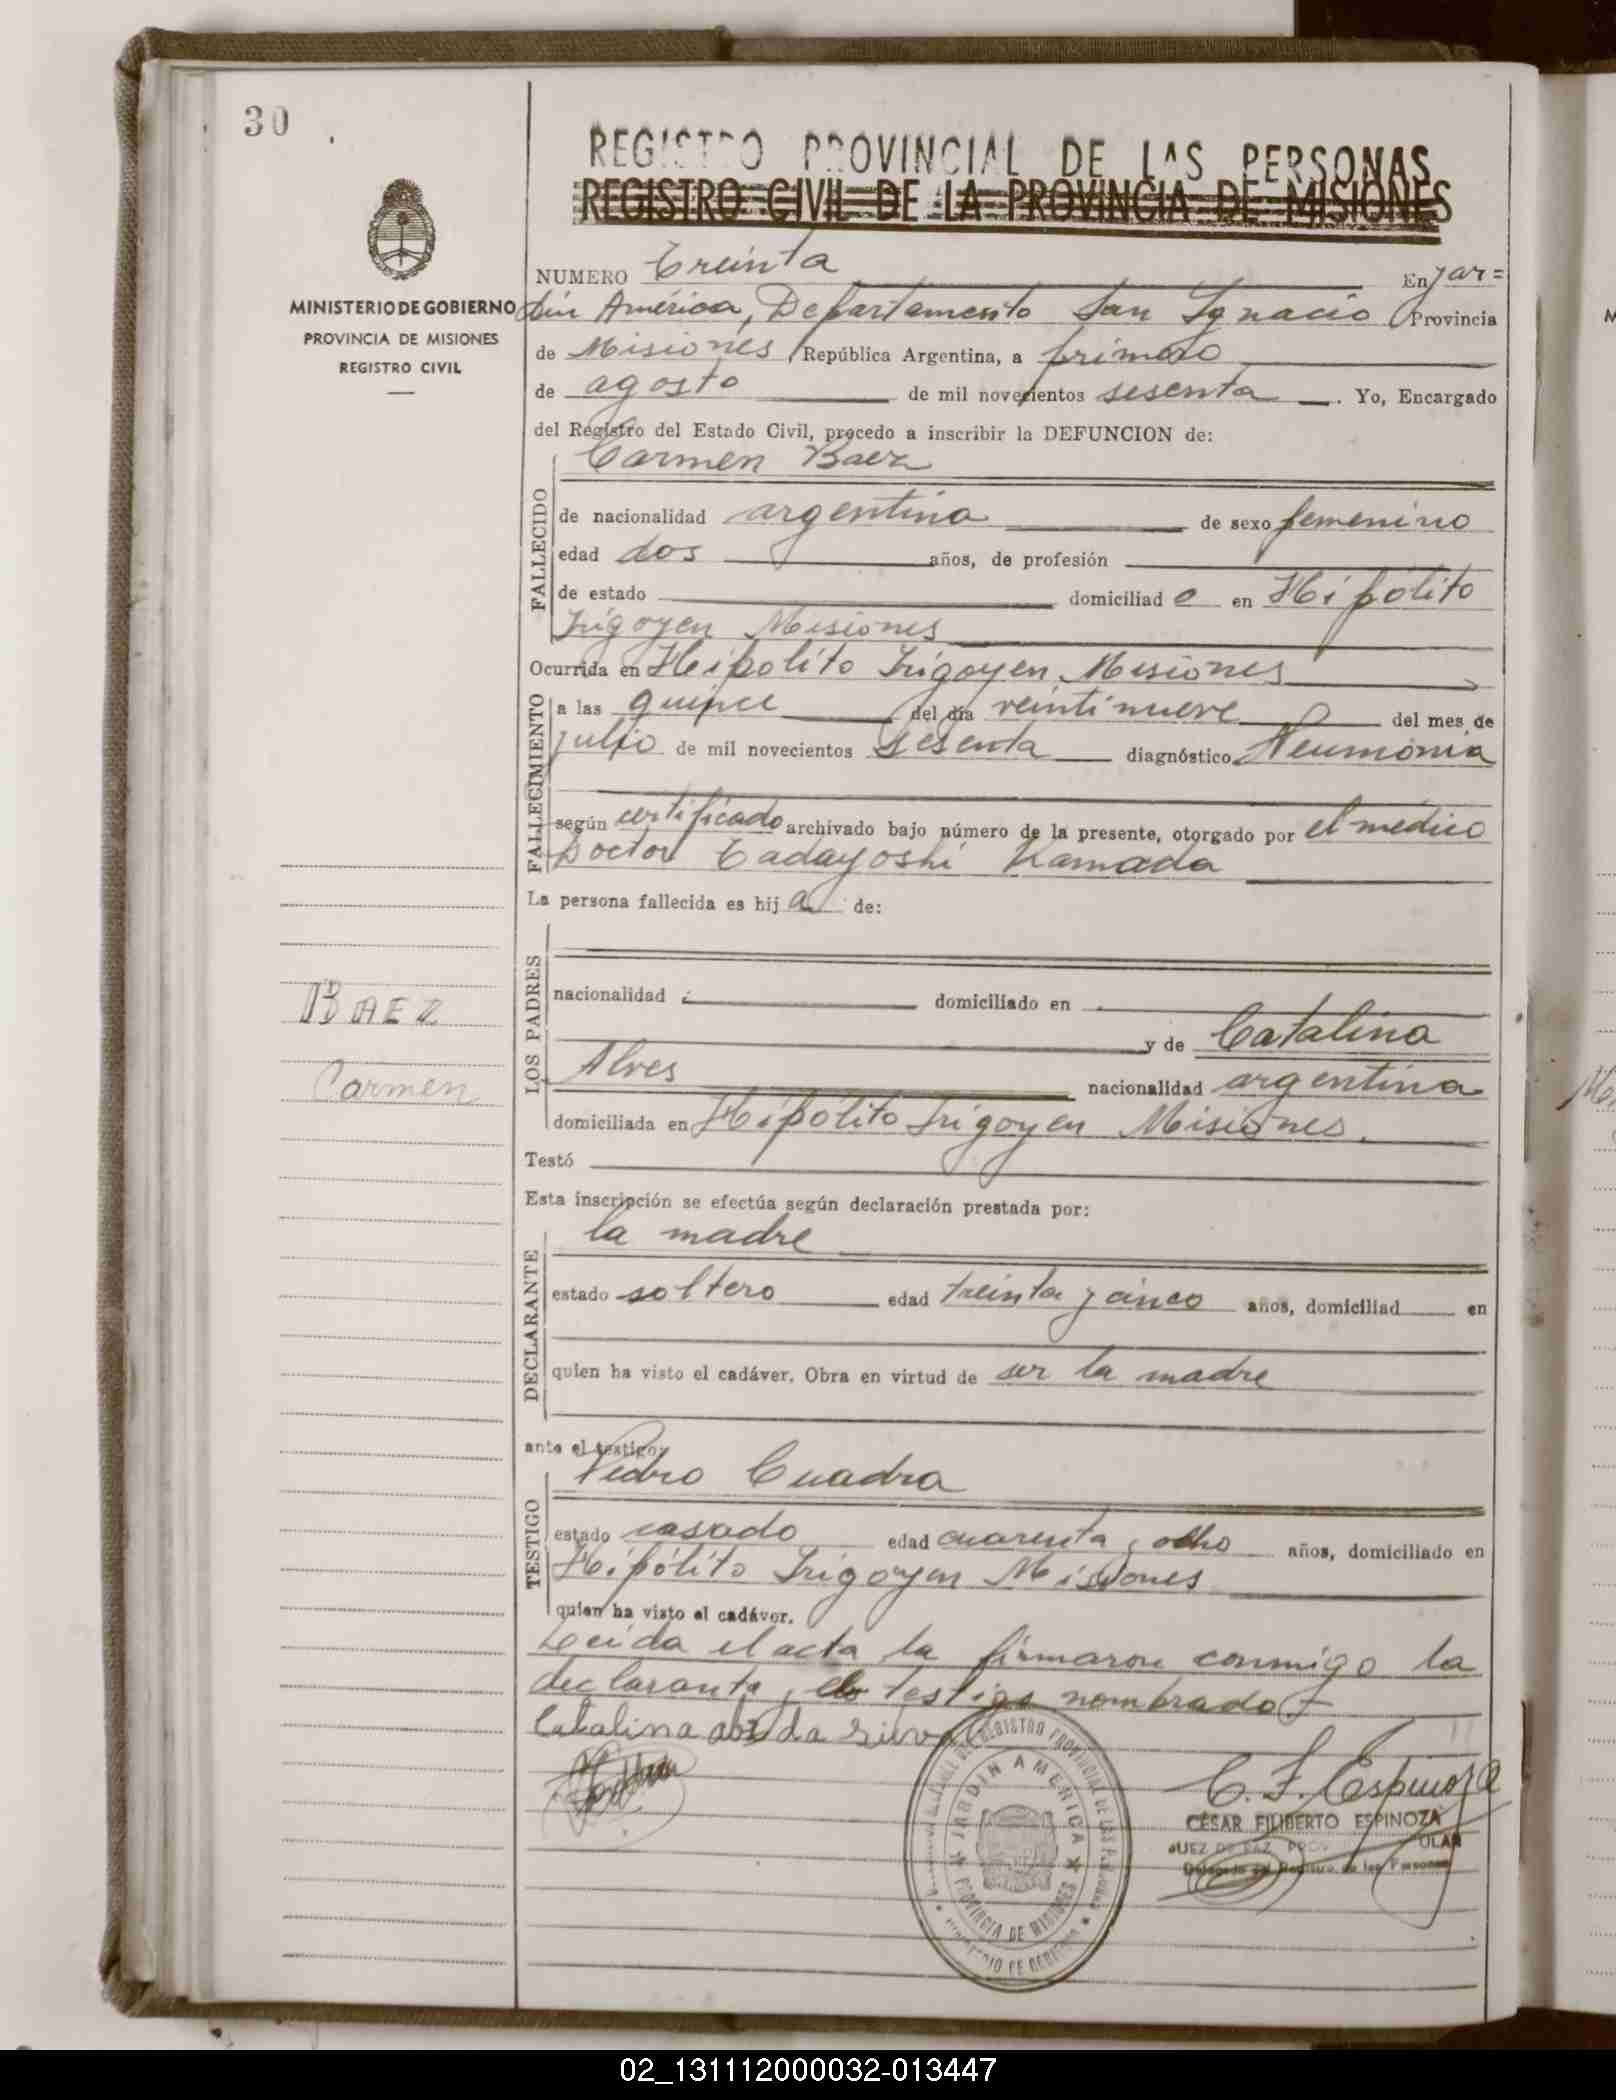 30
REGISTRO PROVINCIAL DE LAS PERSONAS
REGISTRO CIVIL DE LA PROVINCIA DE MISIONES
MINISTERIO DE GOBIERNO
PROVINCIA DE MISIONES
REGISTRO CIVIL
NUMERO Treinta En Jar=
din América, Departamento San Ignacio Provincia
de Misiones República Argentina, a primero
de agosto de mil novecientos sesenta. Yo, Encargado
del Registro del Estado Civil, procedo a inscribir la DEFUNCION de:
Carmen Baez
FALLECIDO
de nacionalidad argentina de sexo femenino
edad dos años, de profesión
de estado domiciliad o en Hipólito
Irigoyen Misiones
Ocurrida en Hipolito Irigoyen Misiones
FALLECIMIENTO
a las quince del día veintinueve del mes de
julio de mil novecientos sesenta diagnóstico Neumonia
según certificado archivado bajo número de la presente, otorgado por el médico
Doctor Tadayoshi Kamada
La persona fallecida es hij a de:
LOS PADRES
nacionalidad domiciliado en
y de Catalina
Alves nacionalidad argentina
domiciliada en Hipólito Irigoyen Misiones.
BAEZ
Carmen
Testó
Esta inscripción se efectúa según declaración prestada por:
la madre
DECLARANTE
estado soltero edad treinta y cinco años, domiciliad en
quien ha visto el cadáver. Obra en virtud de ser la madre
ante el testigo:
Pedro Cuadra
TESTIGO
estado casado edad cuarenta y ocho años, domiciliado en
Hipólito Irigoyen Misiones
quien ha visto el cadáver.
Leida el acta la firmaron conmigo la
declarante y el testigo nombrado
Catalina da
C. F. Espinoza
CESAR FILIBERTO ESPINOZA
JUEZ DE PAZ
Delegado del Registro de las Personas
JARDIN AMERICA
PROVINCIA DE MISIONES
02_131112000032-013447